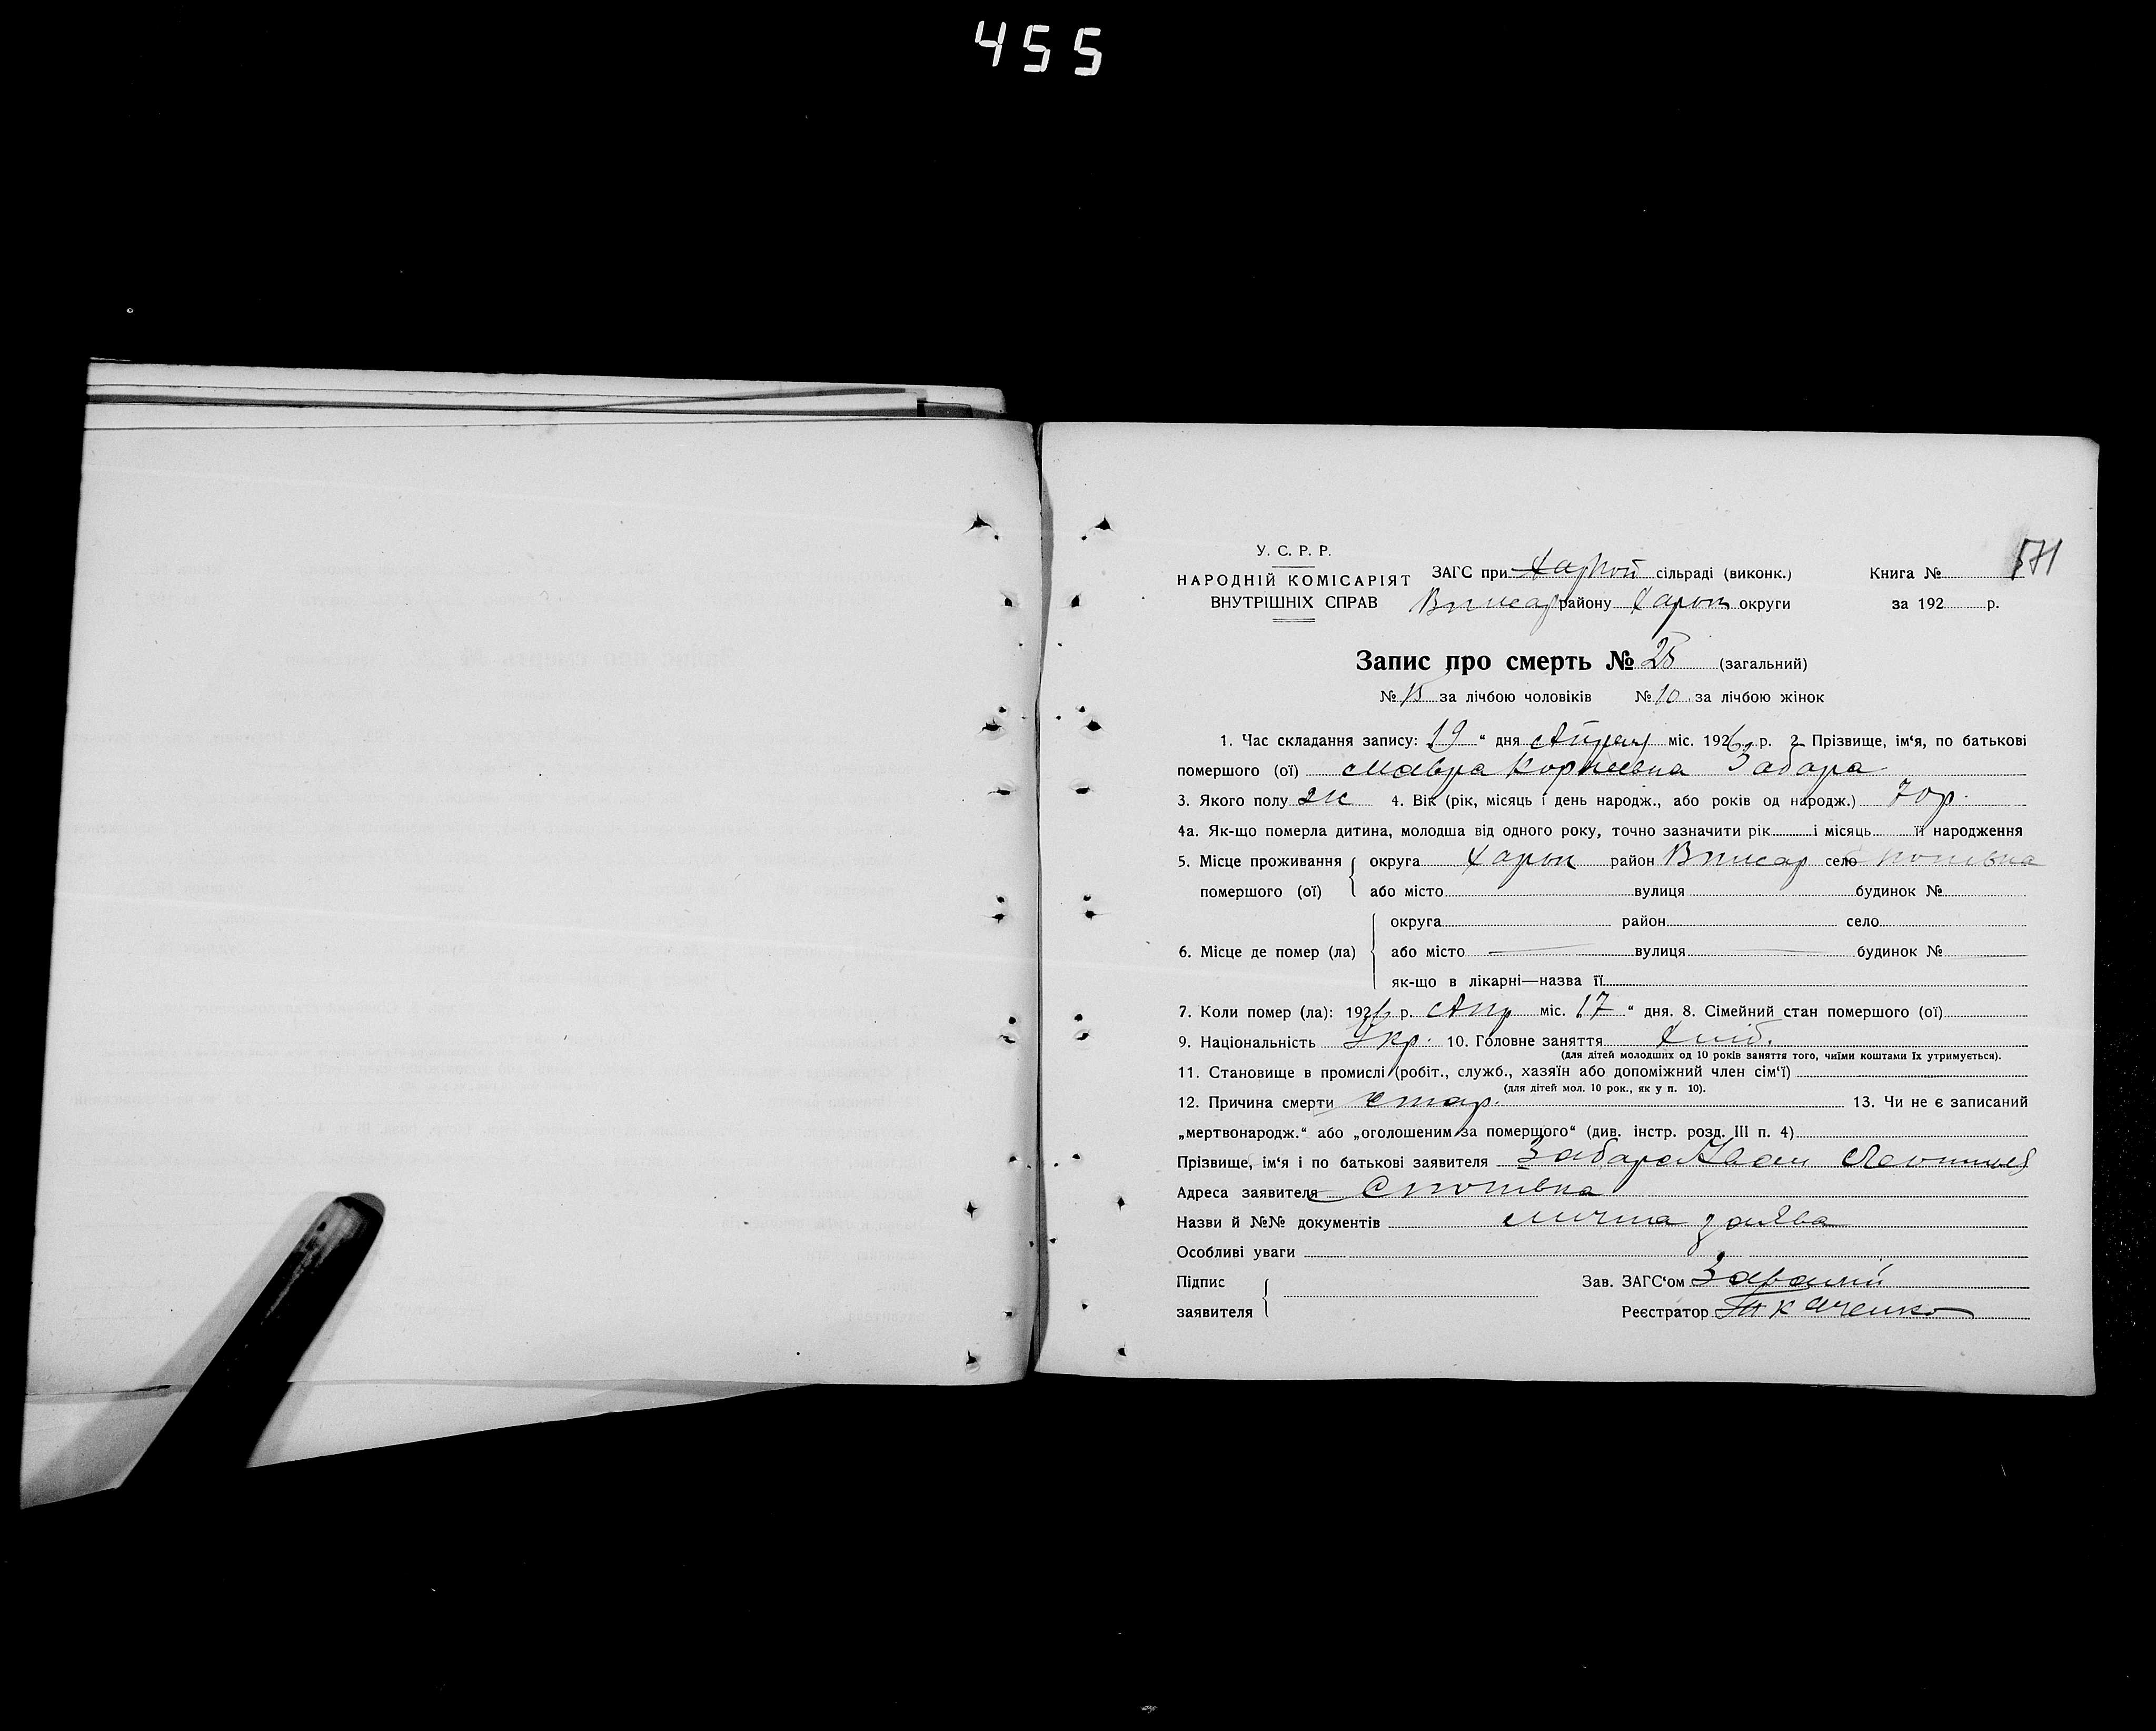 455
У. С. Р. Р.
НАРОДНІЙ КОМІСАРІЯТ
ВНУТРІШНІХ СПРАВ
ЗАГС при сільраді (виконк.)
району Харьк округи
Книга №
за 192 р.
Запис про смерть № 25 (загальний)
№ 15 за лічбою чоловіків № 10 за лічбою жінок
1. Час складання запису: 19 “ дня міс. 1926 р. 2 Прізвище, ім‘я, по батькові
помершого (ої) Мавра Корнеевна Забара
3. Якого полу ж 4. Вік (рік, місяць і день народж., або років од народж.) 70р.
4а. Як-що померла дитина, молодша від одного року, точно зазначити рік і місяць її народження
5. Місце проживання округа Харьк район село
помершого (ої) або місто вулиця будинок №
округа район село
6. Місце де помер (ла) або місто вулиця будинок №
як-що в лікарні—назва її
7. Коли помер (ла): 1926 р. Апр міс. 17 “ дня. 8. Сімейний стан помершого (ої)
9. Національність Укр. 10. Головне заняття Хліб.
(для дітей молодших од 10 років заняття того, чиїми коштами їх утримується).
11. Становище в промислі (робіт., служб., хазяїн або допоміжний член сім‘ї)
(для дітей мол. 10 рок., як у п. 10).
12. Причина смерти стар. 13. Чи не є записаний
„мертвонародж.“ або „оголошеним за помершого“ (див. інстр. розд. III п. 4)
Прізвище, ім‘я і по батькові заявителя Забара Иван
Адреса заявителя
Назви й №№ документів заява
Особливі уваги
Підпис
заявителя
Зав. ЗАГС‘ом
Реєстратор Ткаченко